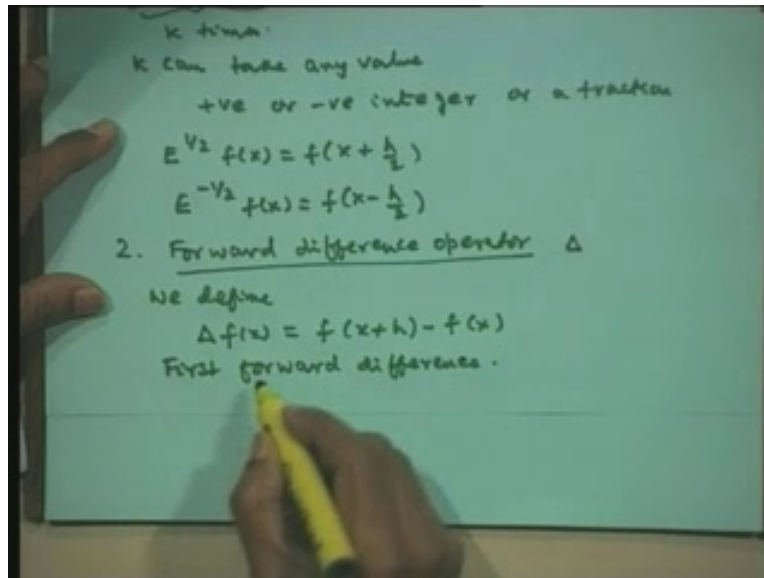 k times.
k can take any value
+ve or -ve integer or a fraction
E^{1/2} f(x) = f(x + h/2)
E^{-1/2} f(x) = f(x - h/2)
2. Forward difference operator Δ
We define
Δ f(x) = f(x+h) - f(x)
First forward difference.